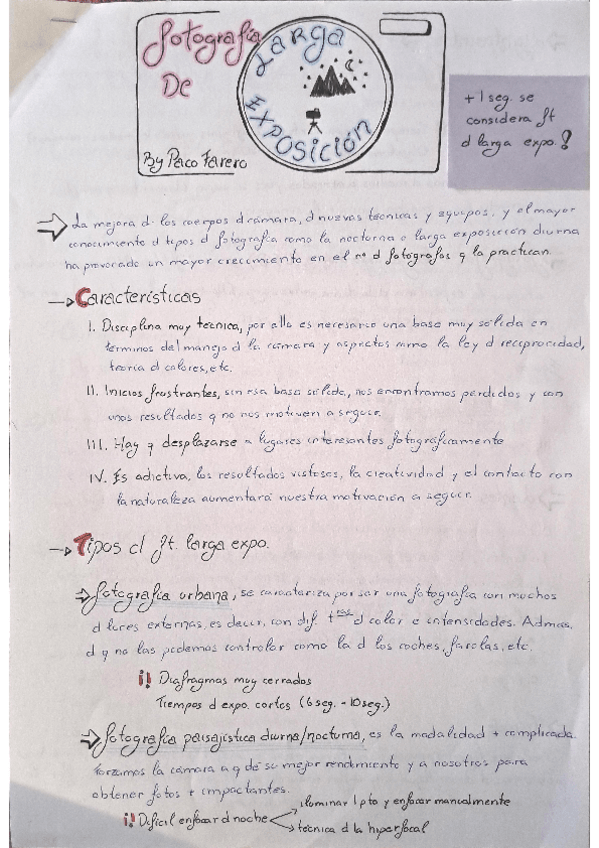 fotografía
De
LARGA
EXPOSICIÓN
By Paco Farero
+1 seg. se
considera ft
d larga expo.!
⇒ La mejora d los cuerpos d cámara, d nuevas técnicas y equipos, y el mayor
conocimiento d tipos d fotografía como la nocturna o larga exposición diurna
ha provocado un mayor crecimiento en el nº d fotógrafos q la practican.
→ Características
I. Disciplina muy técnica, por ello es necesario una base muy sólida en
términos del manejo d la cámara y aspectos como la ley d reciprocidad,
teoría d colores, etc.
II. Inicios frustrantes, sin esa base sólida, nos encontramos perdidos y con
unos resultados q no nos motiven a seguir.
III. Hay q desplazarse a lugares interesantes fotográficamente
IV. Es adictiva, los resultados vistosos, la creatividad y el contacto con
la naturaleza aumentará nuestra motivación a seguir.
→ Tipos d ft. larga expo.
⇒ fotografía urbana, se caracteriza por ser una fotografía con muchos
d luces externas, es decir, con dif. tras d color e intensidades. Además,
d q no las podemos controlar como la d los coches, farolas, etc.
¡! Diafragmas muy cerrados
Tiempos d expo. cortos (6seg. - 10seg.)
⇒ fotografía paisajística diurna/nocturna, es la modalidad + complicada.
forzamos la cámara a q dé su mejor rendimiento y a nosotros para
obtener fotos + impactantes.
¡! Difícil enfocar d noche
iluminar 1 pto y enfocar manualmente
técnica d la hiperfocal